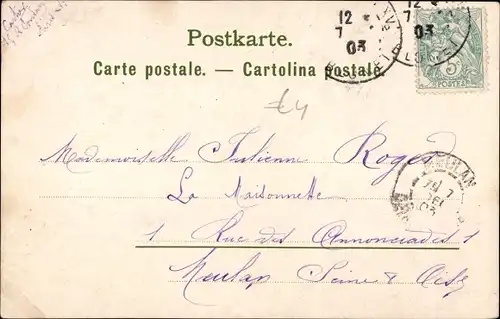 12
7
03
12
7
03
Postkarte.
Carte postale. — Cartolina postale.
5
POSTES
£4
Mademoiselle Julienne Roger
La Maisonnette
1 Rue des Annonciades 1
Meulan Seine & Oise
MEULAN
7
03